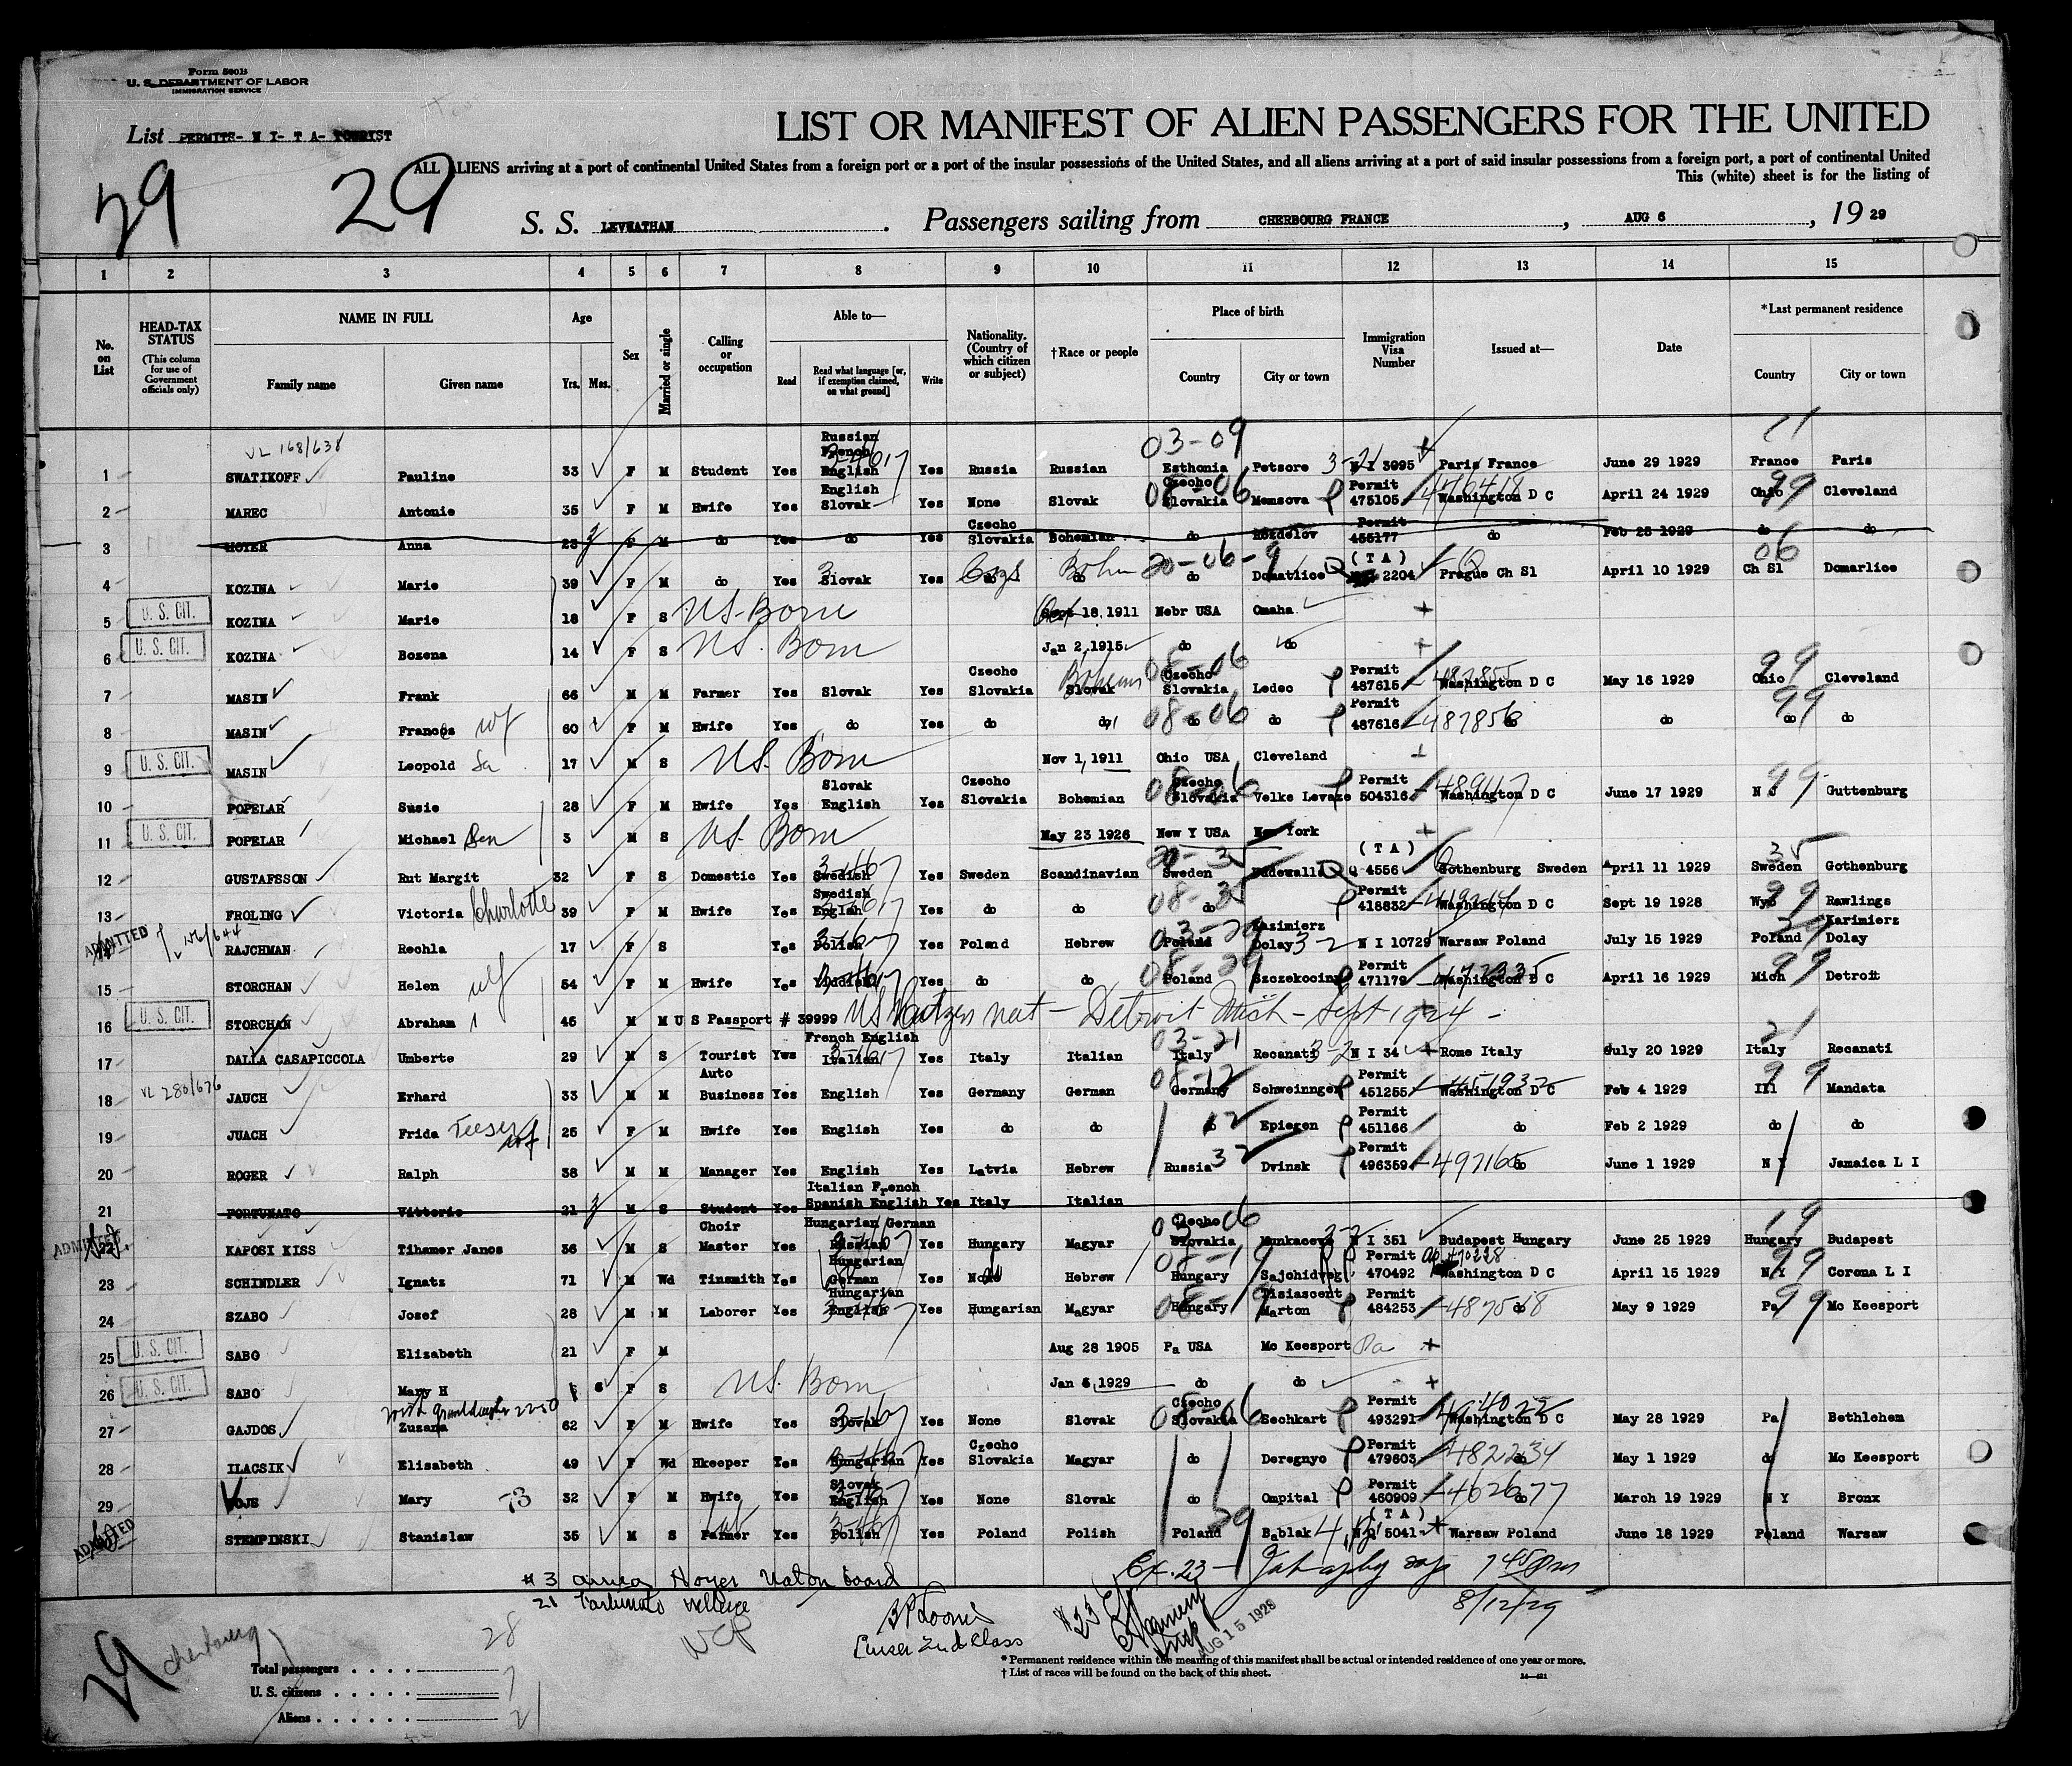 Form 500B
U. S. DEPARTMENT OF LABOR
IMMIGRATION SERVICE
List PERMITS- N I- T A- TOURIST
LIST OR MANIFEST OF ALIEN PASSENGERS FOR THE UNITED
ALL ALIENS arriving at a port of continental United States from a foreign port or a port of the insular possessions of the United States, and all aliens arriving at a port of said insular possessions from a foreign port, a port of continental United
This (white) sheet is for the listing of
29 29
S. S. LEVIATHAN. Passengers sailing from CHERBOURG FRANCE, AUG 6, 19 29
1 2 3 4 5 6 7 8 9 10 11 12 13 14 15
No. on List
HEAD-TAX STATUS
(This column for use of Government officials only)
NAME IN FULL
Family name Given name
Age
Yrs. Mos.
Sex
Married or single
Calling or occupation
Able to—
Read
Read what language [or, if exemption claimed, on what ground]
Write
Nationality. (Country of which citizen or subject)
†Race or people
Place of birth
Country City or town
Immigration Visa Number
Issued at—
Date
*Last permanent residence
Country City or town
VL 168/638
1 SWATIKOFF Pauline 33 F M Student Yes Russian French English Yes Russia Russian Esthonia Petsore N I 3995 Paris France June 29 1929 France Paris
03-09
2 MAREC Antonie 35 F M Hwife Yes English Slovak Yes None Slovak Czecho Slovakia Memsova Permit 475105 Washington D C April 24 1929 Ohio Cleveland
3 HOYER Anna 23 F M do Yes do Yes Czecho Slovakia Bohemian do Rozdelov Permit 455177 do Feb 25 1929 do do
4 KOZINA Marie 39 F M do Yes Slovak Yes do do do Domatlice (T A) 2204 Prague Ch Sl April 10 1929 Ch Sl Domarlice
Bohm 20-06-9 06
5 U. S. CIT. KOZINA Marie 18 F S US Born Oct 18.1911 Nebr USA Omaha
6 U. S. CIT. KOZINA Bozena 14 F S US. Born Jan 2,1915 do do
7 MASIN Frank 66 M M Farmer Yes Slovak Yes Czecho Slovakia Slovak Czecho Slovakia Ledec Permit 487615 Washington D C May 16 1929 Ohio Cleveland
8 MASIN Frances wf 60 F M Hwife Yes do Yes do do do do Permit 487616 487856 do do do
08-06 99
9 U. S. CIT. MASIN Leopold 17 M S US. Born Nov 1,1911 Ohio USA Cleveland
10 POPELAR Susie 28 F M Hwife Yes Slovak English Yes Czecho Slovakia Bohemian Czecho Slovakia Velke Levaze Permit 504316 Washington D C June 17 1929 N J Guttenburg
11 U. S. CIT. POPELAR Michael 3 M S US. Born May 23 1926 New Y USA New York
12 GUSTAFSSON Rut Margit 32 F S Domestic Yes Swedish Yes Sweden Scandinavian Sweden Uddewalla (T A) Q 4556 Gothenburg Sweden April 11 1929 Sweden Gothenburg
13 FROLING Victoria Charlotte 39 F M Hwife Yes Swedish English Yes do do do Permit 418832 Washington D C Sept 19 1928 Wyo Rawlings
ADMITTED RAJCHMAN Rechla 17 F S Yes Polish Yes Poland Hebrew Poland Kazimierz Dolay N I 10729 Warsaw Poland July 15 1929 Poland Karimierz Dolay
15 STORCHAN Helen wf 54 F M Hwife Yes Yiddish Yes do do Poland Szczekociny Permit 471179 Washington D C April 16 1929 Mich Detroit
16 U. S. CIT. STORCHAN Abraham 45 M M U S Passport # 39999 US Citizen nat - Detroit Mich - Sept 1924 -
17 DALLA CASAPICCOLA Umberte 29 M S Tourist Yes French English Italian Yes Italy Italian Italy Recanati N I 34 Rome Italy July 20 1929 Italy Recanati
VL 280/676
18 JAUCH Erhard 33 M M Auto Business Yes English Yes Germany German Germany Schweinngen Permit 451255 Washington D C Feb 4 1929 Ill Mandata
19 JUACH Frida wf 25 F M Hwife Yes English Yes do do Epiegen Permit 451166 do Feb 2 1929 do do
20 ROGER Ralph 38 M M Manager Yes English Yes Latvia Hebrew Russia Dvinsk Permit 496359 497165 do June 1 1929 N Y Jamaica L I
21 FORTUNATO Vittorio 21 M S Student Yes Italian French Spanish English Yes Italy Italian
ADMITTED 22 KAPOSI KISS Tihamer Janos 36 M S Choir Master Yes Hungarian German Russian Yes Hungary Magyar Czecho Slovakia Munkacevo N I 351 Budapest Hungary June 25 1929 Hungary Budapest
23 SCHINDLER Ignatz 71 M Wd Tinsmith Yes Hungarian German Yes None Hebrew Hungary Sajohidveg Permit 470492 Washington D C April 15 1929 N Y Corona L I
24 SZABO Josef 28 M M Laborer Yes Hungarian English Yes Hungarian Magyar Hungary Tisiascent Marton Permit 484253 do May 9 1929 Pa Mc Keesport
25 U. S. CIT. SABO Elizabeth 21 F M Aug 28 1905 Pa USA Mc Keesport Pa
26 U. S. CIT. SABO Mary H 6 F S US. Born Jan 6,1929 do do
27 GAJDOS Zuzana 62 F M Hwife Yes Slovak Yes None Slovak Czecho Slovakia Sechkart Permit 493291 Washington D C May 28 1929 Pa Bethlehem
28 ILACSIK Elisabeth 49 F Wd Hkeeper Yes Hungarian Yes Czecho Slovakia Magyar do Deregnyo Permit 479603 482234 do May 1 1929 do Mc Keesport
29 VOJS Mary 73 32 F M Hwife Yes Slovak English Yes None Slovak do Ompital Permit 460909 462677 do March 19 1929 N Y Bronx
ADMITTED STEMPINSKI Stanislaw 35 M S Farmer Yes Polish Yes Poland Polish Poland Bablak (T A) 5041 Warsaw Poland June 18 1929 Poland Warsaw
Ex. 23 - 7 45 pm
8/12/29
#3 Hoyer Not on board
21 Fortunato
28
Purser 2nd Class
#23
AUG 15 1929
29 Cherbourg
Total passengers
U. S. citizens 7
Aliens 21
* Permanent residence within the meaning of this manifest shall be actual or intended residence of one year or more.
† List of races will be found on the back of this sheet.